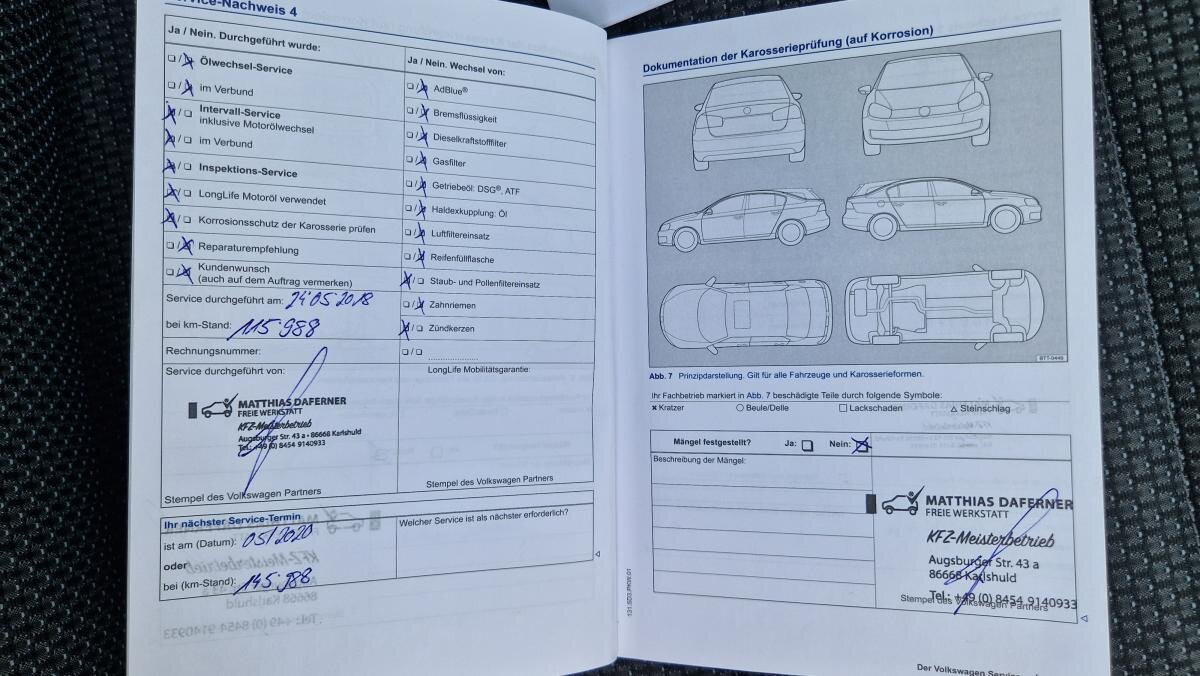 ervice-Nachweis 4
Ja / Nein. Durchgeführt wurde:
❑ / ❑ Ölwechsel-Service
❑ / ❑ im Verbund
❑ / ❑ Intervall-Service
inklusive Motorölwechsel
❑ / ❑ im Verbund
❑ / ❑ Inspektions-Service
❑ / ❑ LongLife Motoröl verwendet
❑ / ❑ Korrosionsschutz der Karosserie prüfen
❑ / ❑ Reparaturempfehlung
❑ / ❑ Kundenwunsch
(auch auf dem Auftrag vermerken)
Service durchgeführt am: 24 05 2018
bei km-Stand: 115 988
Rechnungsnummer:
Service durchgeführt von:
MATTHIAS DAFERNER
FREIE WERKSTATT
KFZ-Meisterbetrieb
Augsburger Str. 43 a • 86668 Karlshuld
Tel.: +49 (0) 8454 9140933
Stempel des Volkswagen Partners
Ja / Nein. Wechsel von:
❑ / ❑ AdBlue®
❑ / ❑ Bremsflüssigkeit
❑ / ❑ Dieselkraftstofffilter
❑ / ❑ Gasfilter
❑ / ❑ Getriebeöl: DSG®, ATF
❑ / ❑ Haldexkupplung: Öl
❑ / ❑ Luftfiltereinsatz
❑ / ❑ Reifenfüllflasche
❑ / ❑ Staub- und Pollenfiltereinsatz
❑ / ❑ Zahnriemen
❑ / ❑ Zündkerzen
❑ / ❑ ....................
LongLife Mobilitätsgarantie:
Stempel des Volkswagen Partners
Ihr nächster Service-Termin
ist am (Datum): 05/2020
oder
bei (km-Stand): 145 988
Welcher Service ist als nächster erforderlich?
131.5D3.PKW.01
Dokumentation der Karosserieprüfung (auf Korrosion)
BTT-0449
Abb. 7 Prinzipdarstellung. Gilt für alle Fahrzeuge und Karosserieformen.
Ihr Fachbetrieb markiert in Abb. 7 beschädigte Teile durch folgende Symbole:
✖ Kratzer ○ Beule/Delle □ Lackschaden △ Steinschlag
Mängel festgestellt? Ja: ❑ Nein: ❑
Beschreibung der Mängel:
MATTHIAS DAFERNER
FREIE WERKSTATT
KFZ-Meisterbetrieb
Augsburger Str. 43 a
86668 Karlshuld
Tel.: +49 (0) 8454 9140933
Stempel des Volkswagen Partners
Der Volkswagen Service